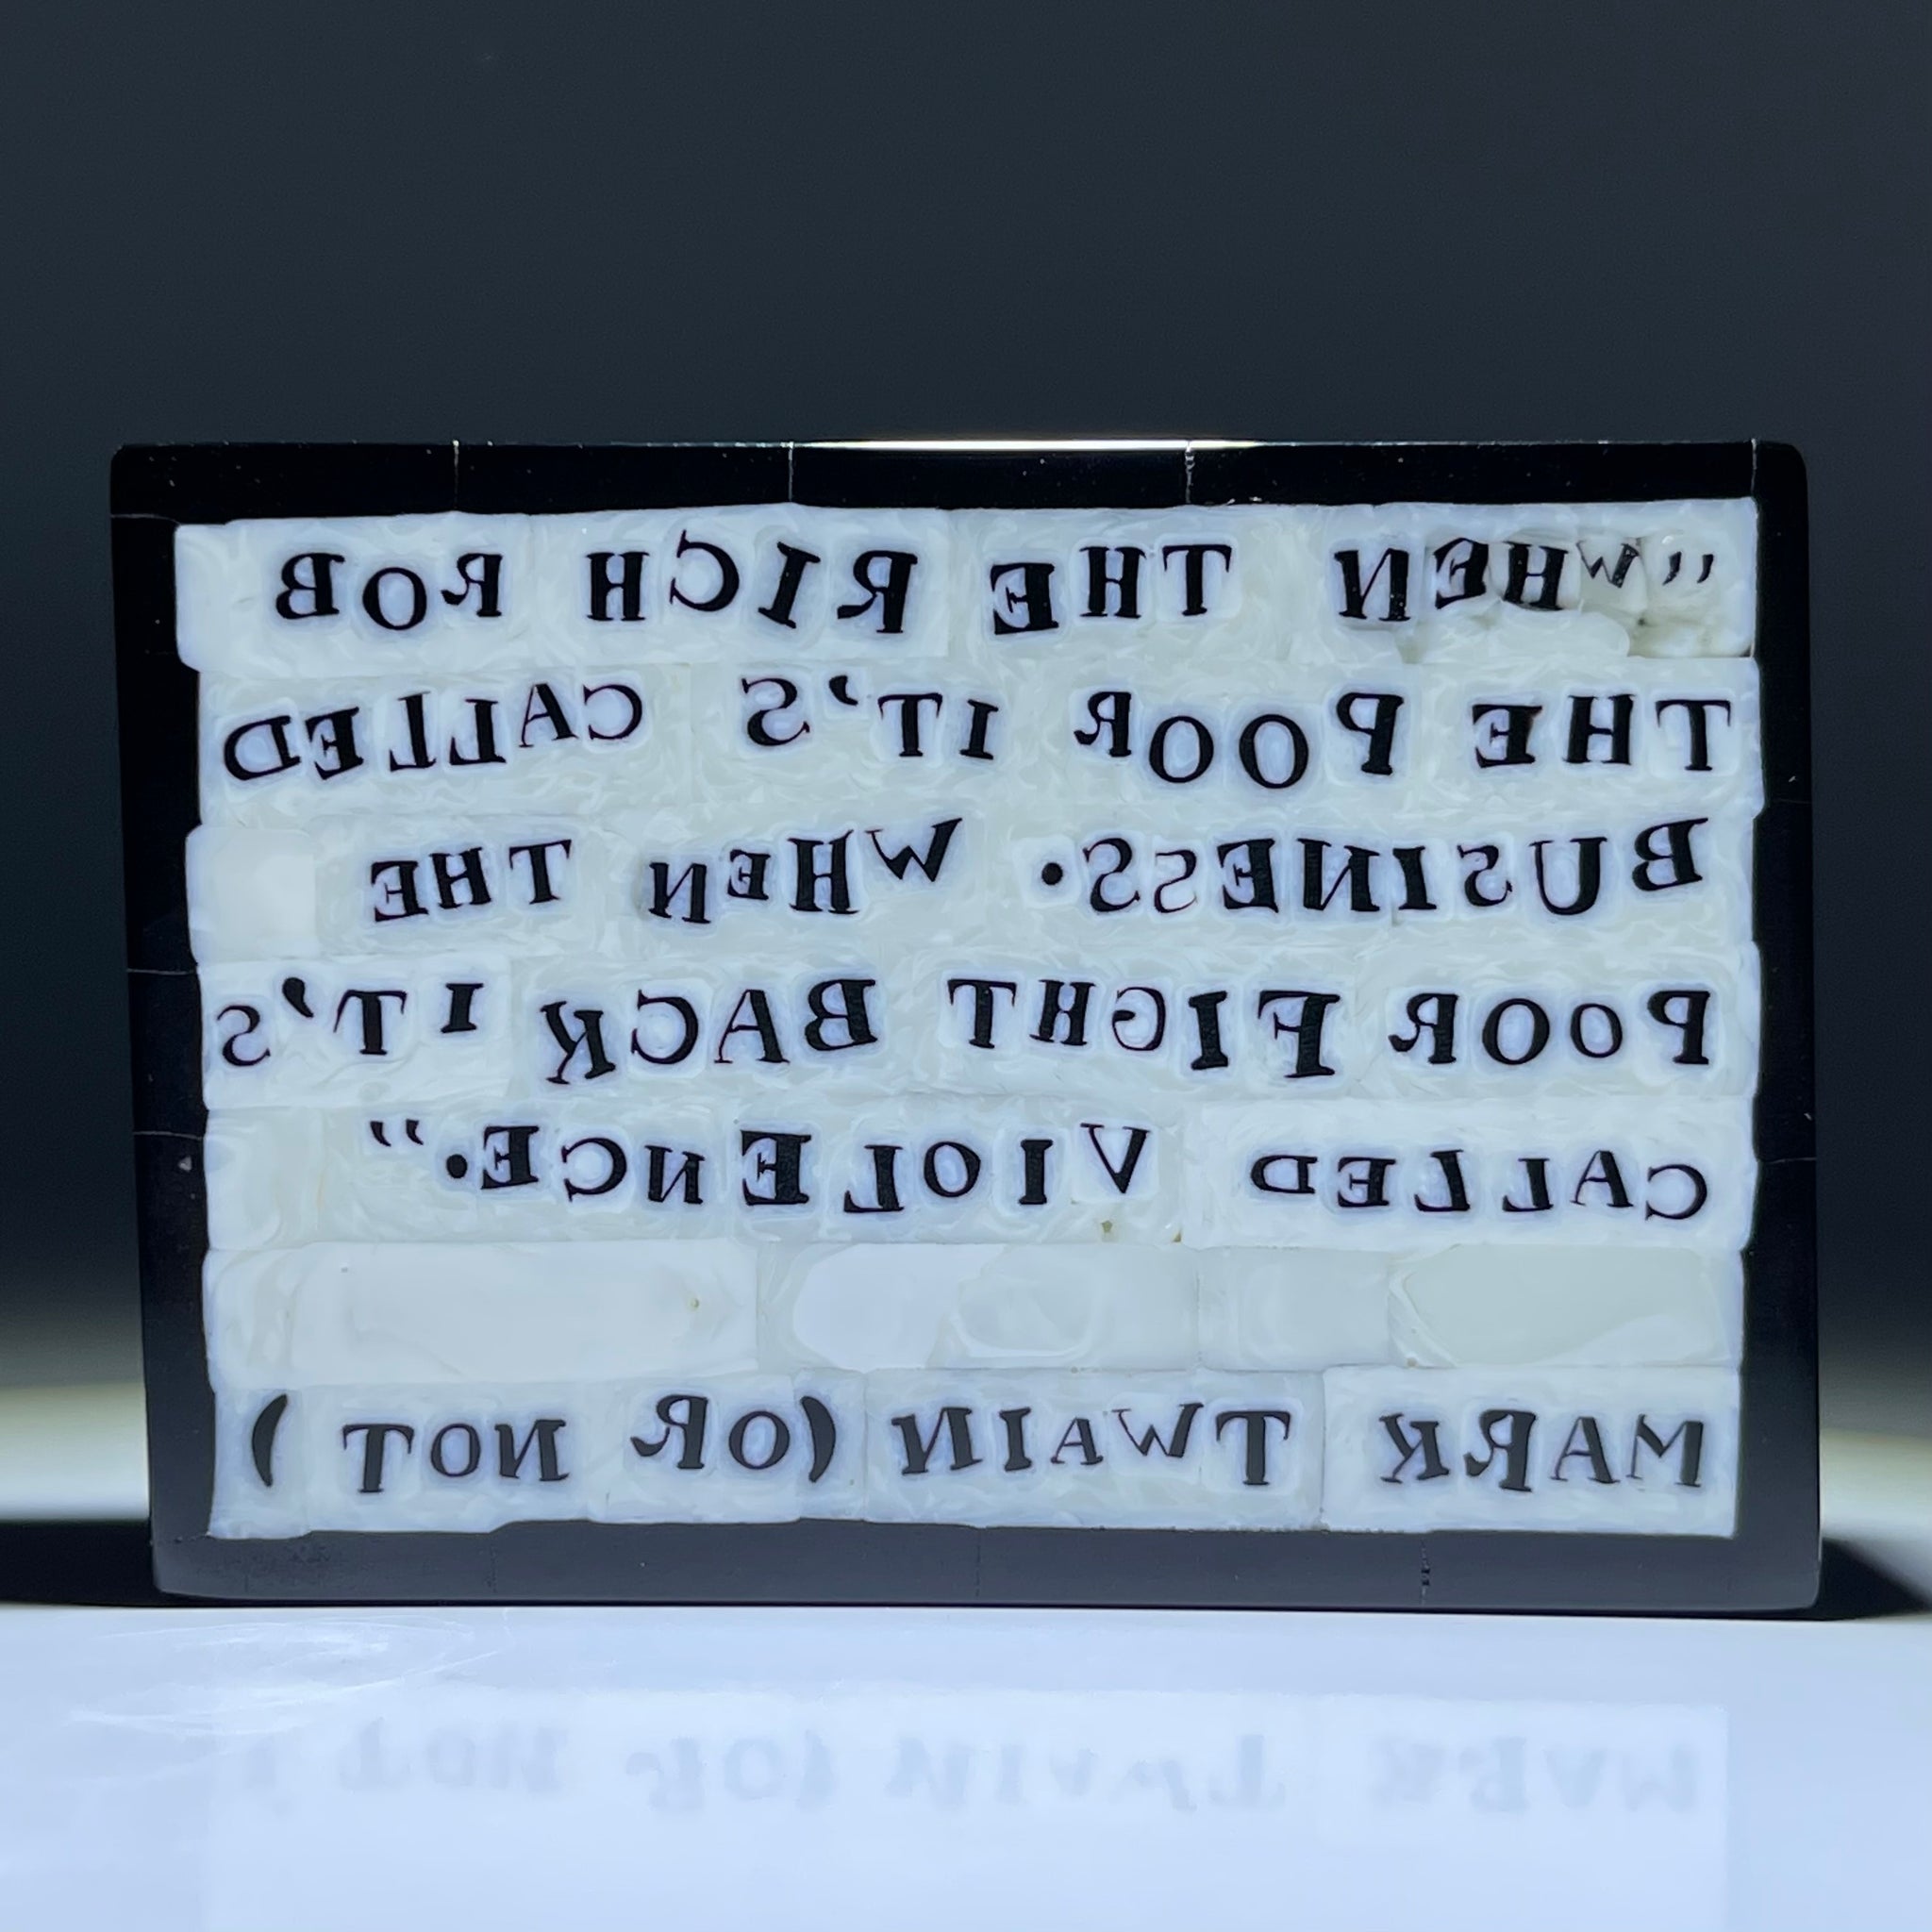 "WHEN THE RICH ROB
THE POOR IT'S CALLED
BUSINESS. WHEN THE
POOR FIGHT BACK IT'S
CALLED VIOLENCE."
MARK TWAIN (OR NOT)